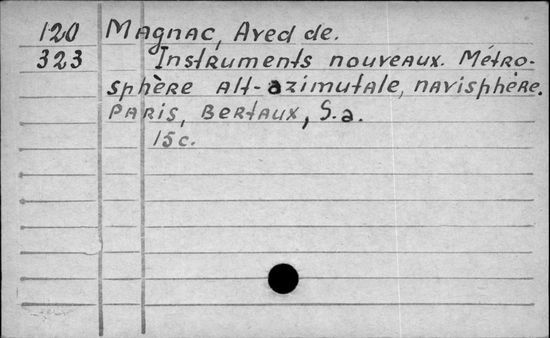 120 Magnac, Aved de.
323 Instruments nouveaux. Métro-
sphère alt-azimutale, navisphère.
Paris, Bertaux, S.a.
15c.